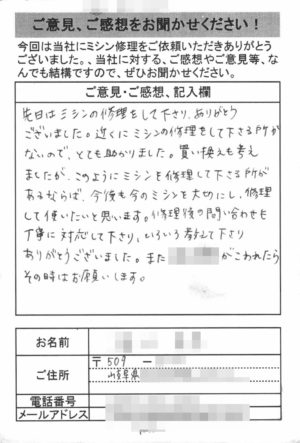 ご意見、ご感想をお聞かせください!
今回は当社にミシン修理をご依頼いただきありがとう
ございました。、当社に対する、ご感想やご意見等、な
んでも結構ですので、ぜひお聞かせください。
ご意見・ご感想、記入欄
先日はミシンの修理をして下さり、ありがとう
ございました。近くにミシンの修理をして下さる所が
ないので、とても助かりました。買い換えも考え
ましたが、このようにミシンを修理して下さる所が
あるならば、今後も今のミシンを大切にし、修理
して使いたいと思います。修理後の問い合わせも
丁寧に対応して下さり、いろいろ教えて下さり
ありがとうございました。また がこわれたら
その時はお願いします。
お名前
ご住所
〒509 ー
岐阜県
電話番号
メールアドレス